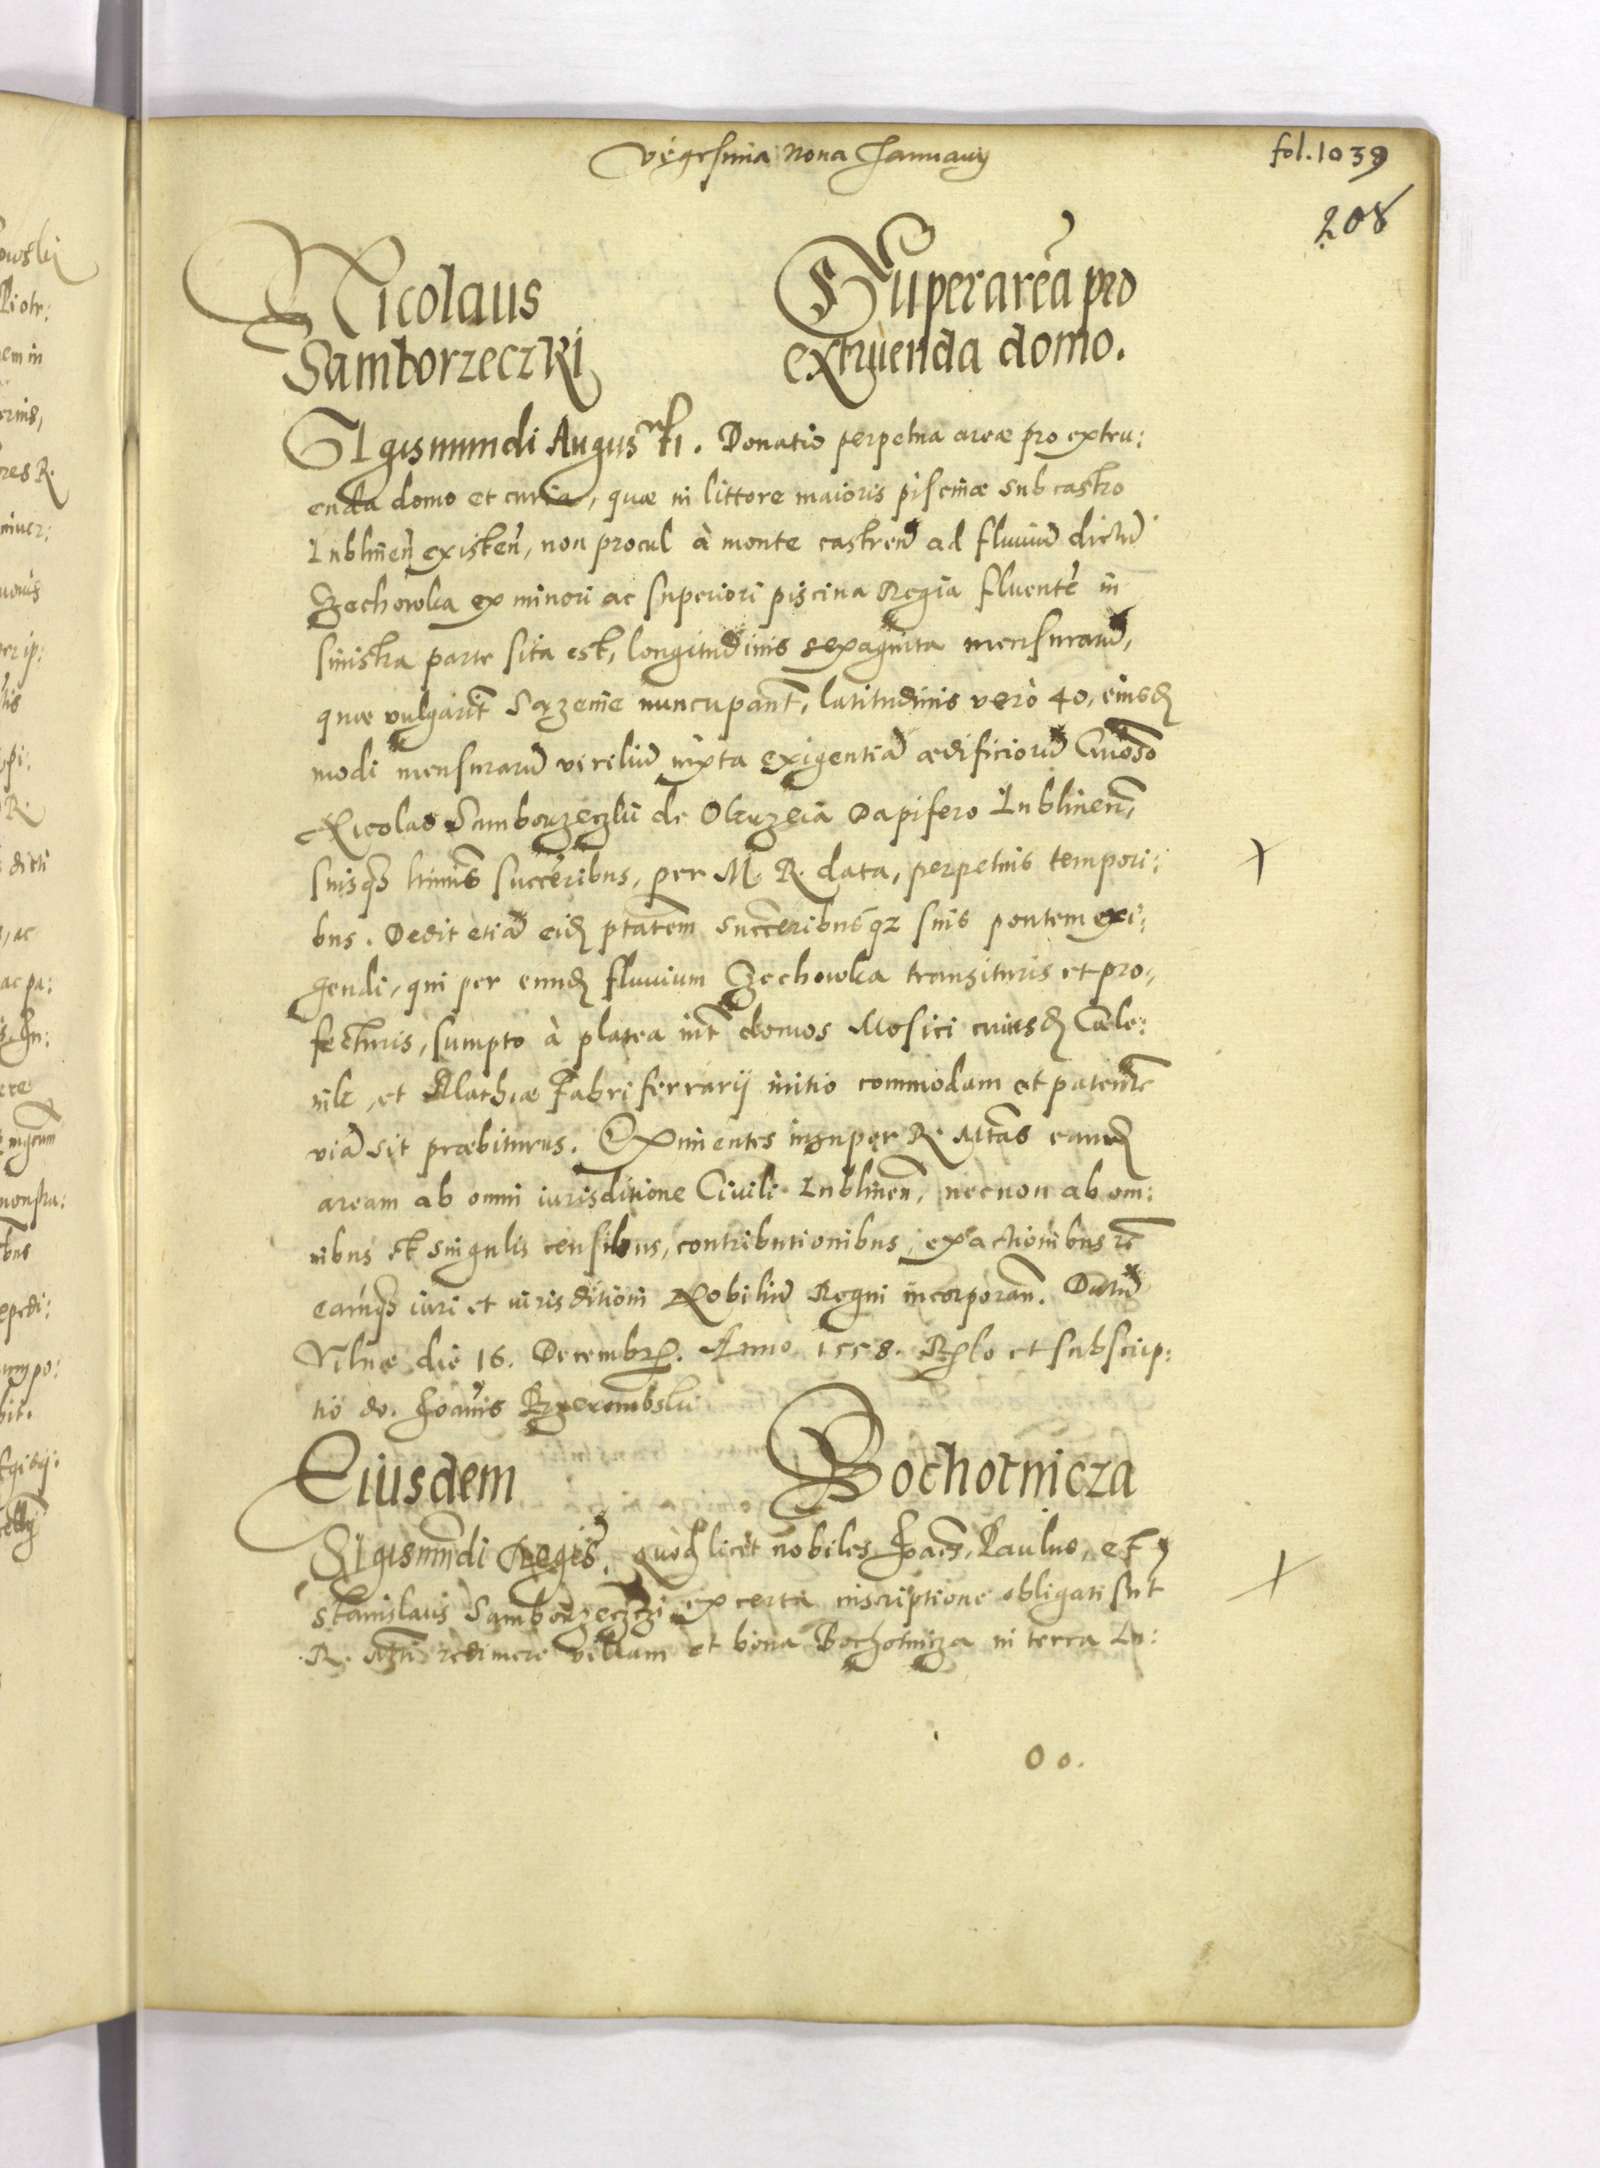 Vigesima Nona Januarÿ
fol. 1039
208
Nicolaus
Samborzeczki
Super areã pro
extruenda domo.
SIgismundi Augusti. Donatio perpetua areæ pro extru:
enda domo et curia, quæ in littore maioris piscinæ sub castro
Lublineñ existeñ, non procul à monte castreñ ad fluuiũ dictũ
Czechowka ex minori ac superiori piscina Regia fluentẽ in
sinistra parte sita est, longitudinis sexaginta mensurarũ,
quæ vulgarit Sązenie nuncupant, latitudinis verò 40, eiusd
modi mensurarũ viriliũ iuxta exigentiã ædificiorũ Gñoso
Nicolao Samborzeczki de Olruzeia Dapifero Lublineñ,
suisqz ltimis succeribus, per M. R. data, perpetuis tempori:
bus. Dedit etiã eid ptatem succeribusqz suis pontem exi:
gendi, qui per eund fluuium Czechowka transituris et pro:
fecturis, sumpto à platea int domos Mosici cuiusd Cæle:
nik, et Mathiæ Fabri ferrarij initio commodam et patentẽ
viã sit præbiturus. Eximentes insuper R. Mtas eand
aream ab omni iurisditione Ciuili Lublineñ, necnon ab om:
nibus et singulis censibus, contributionibus, exactionibus rc
eamqz iuri et iurisditioni Nobiliũ Regni incorporañ. Datũ
Vilnæ die 16. Decembr. Anno 1558. Rglo et subscrip:
tiõ do. Joannis Przerembski
Eiusdem
Bochotnicza
SIgismundi Regis, quòd licèt nobiles Joaes, Paulus, et
Stanislaus Samborzeczczi ex certa inscriptione obligati sut
R. Mti redimere villam et bona Bochotnicza in terra Lu:
Oo.